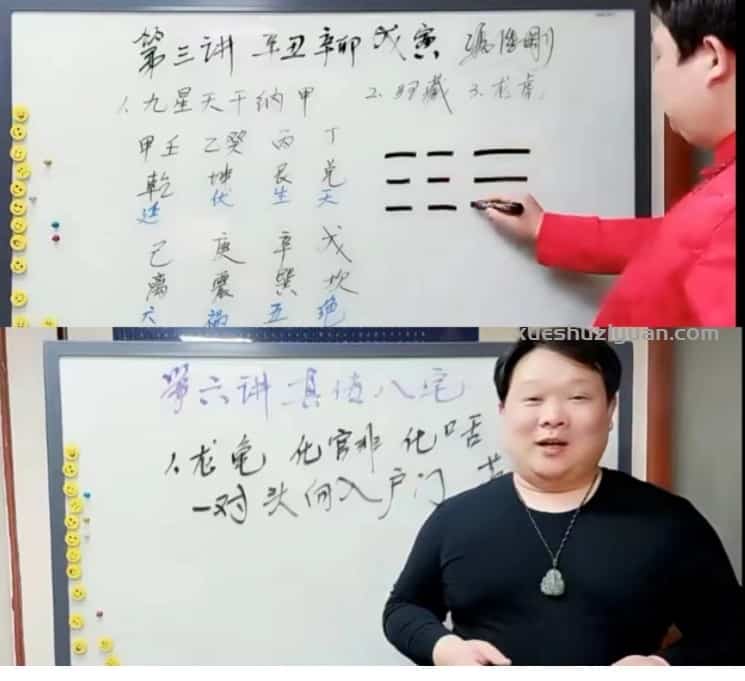 第三讲 辛丑辛卯戊寅
1、九星天干纳甲 2、归藏 3、龙虎
甲壬 乙癸 丙 丁
乾 坤 艮 兑
延 伏 生 天
己 庚 辛 戊
离 震 巽 坎
六 祸 五 绝
xueshuziyuan.com
第六讲 真值八宅
1、龙龟 化官非 化口舌
一对 头向入户门